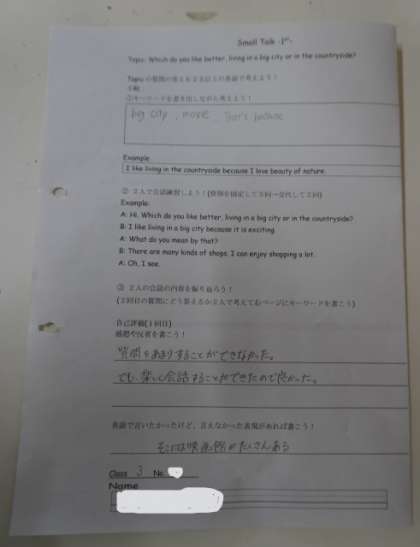 Small Talk -1st-
Topic: Which do you like better, living in a big city or in the countryside?
Topic の質問の答えを2文以上の英語で考えよう!
①キーワードを書き出しながら考えよう!
big city, movie,
Example
I like living in the countryside because I love beauty of nature.
② 2人で会話練習しよう!(役割を固定して3回→交代して3回)
Example:
A: Hi. Which do you like better, living in a big city or in the countryside?
B: I like living in a big city because it is exciting.
A: What do you mean by that?
B: There are many kinds of shops. I can enjoy shopping a lot.
A: Oh, I see.
③ 2人の会話の内容を振り返ろう!
(2回目の質問にどう答えるか2人で考えて右ページにキーワードを書こう)
自己評価(1回目)
感想や反省を書こう!
質問をあまりすることができなかった。
でも、楽しく会話することができたので良かった。
英語で言いたかったけど、言えなかった表現があれば書こう!
そこには映画館がたくさんある
Class 3 No.
Name